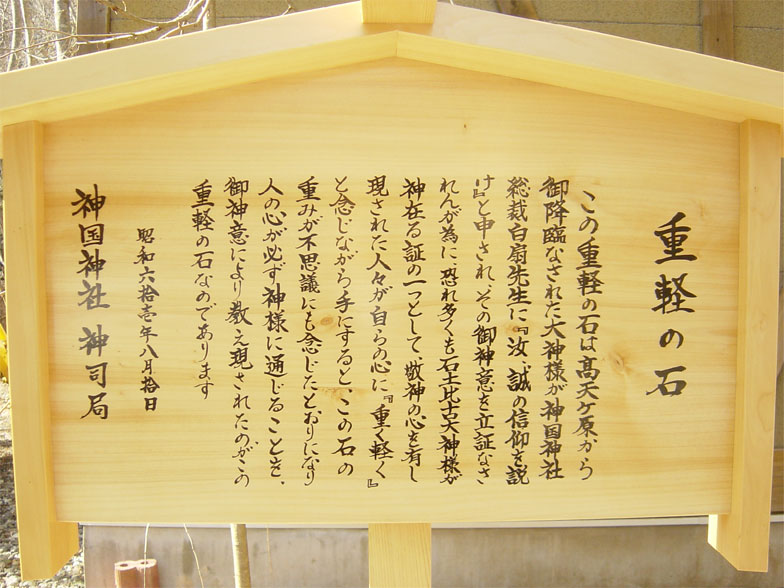 重軽の石
この重軽の石は高天ケ原から
御降臨なされた大神様が神国神社
総裁白扇先生に『汝、誠の信仰を説
け』と申され、その御神意を立証なさ
れんが為に、恐れ多くも石土比古大神様が
神在る証の一つとして、敬神の心を有し
現された人々が自らの心に『重く軽く』
と念じながら手にすると、この石の
重みが不思議にも念じたとおりになり
人の心が必ず神様に通じることを、
御神意により教え現されたのがこの
重軽の石なのであります
昭和六拾壱年八月拾日
神国神社 神司局